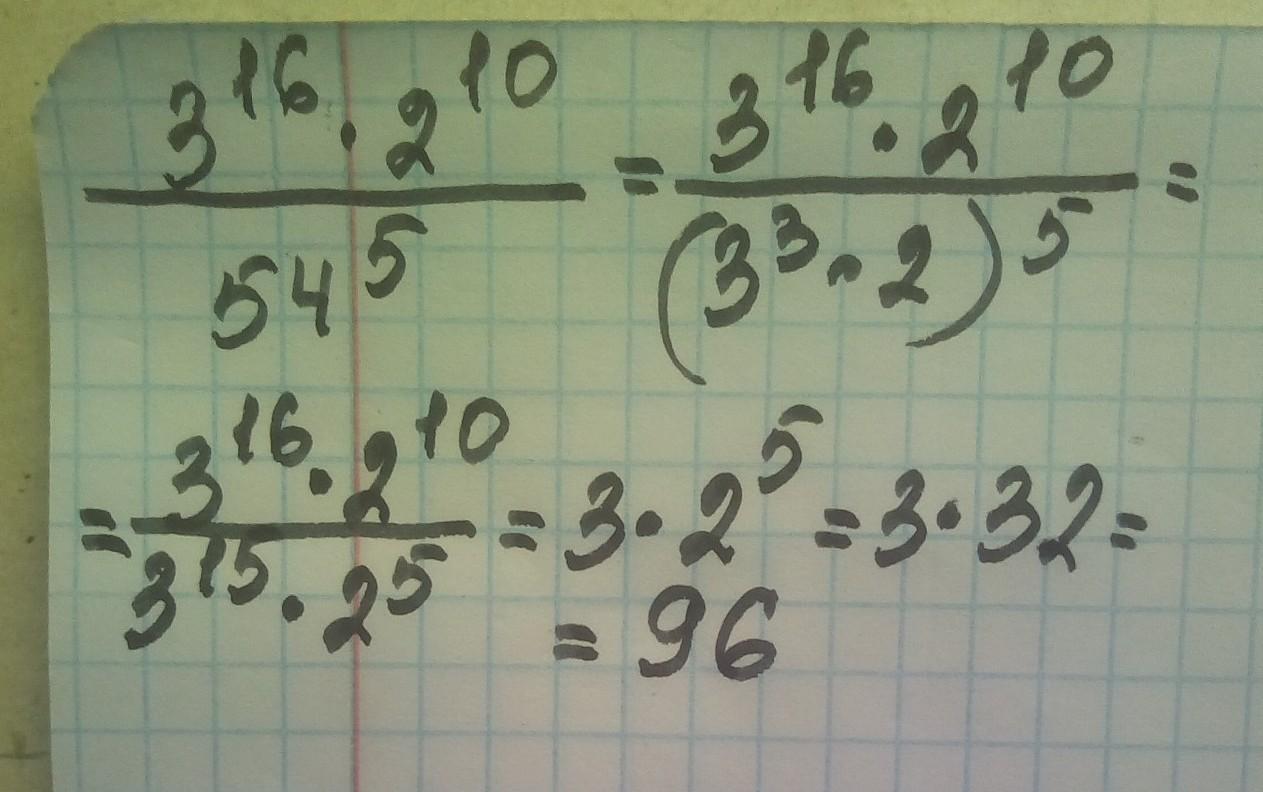 3^16 · 2^10 / 54^5 = 3^16 · 2^10 / (3^3 · 2)^5 =
= 3^16 · 2^10 / 3^15 · 2^5 = 3 · 2^5 = 3 · 32 =
= 96